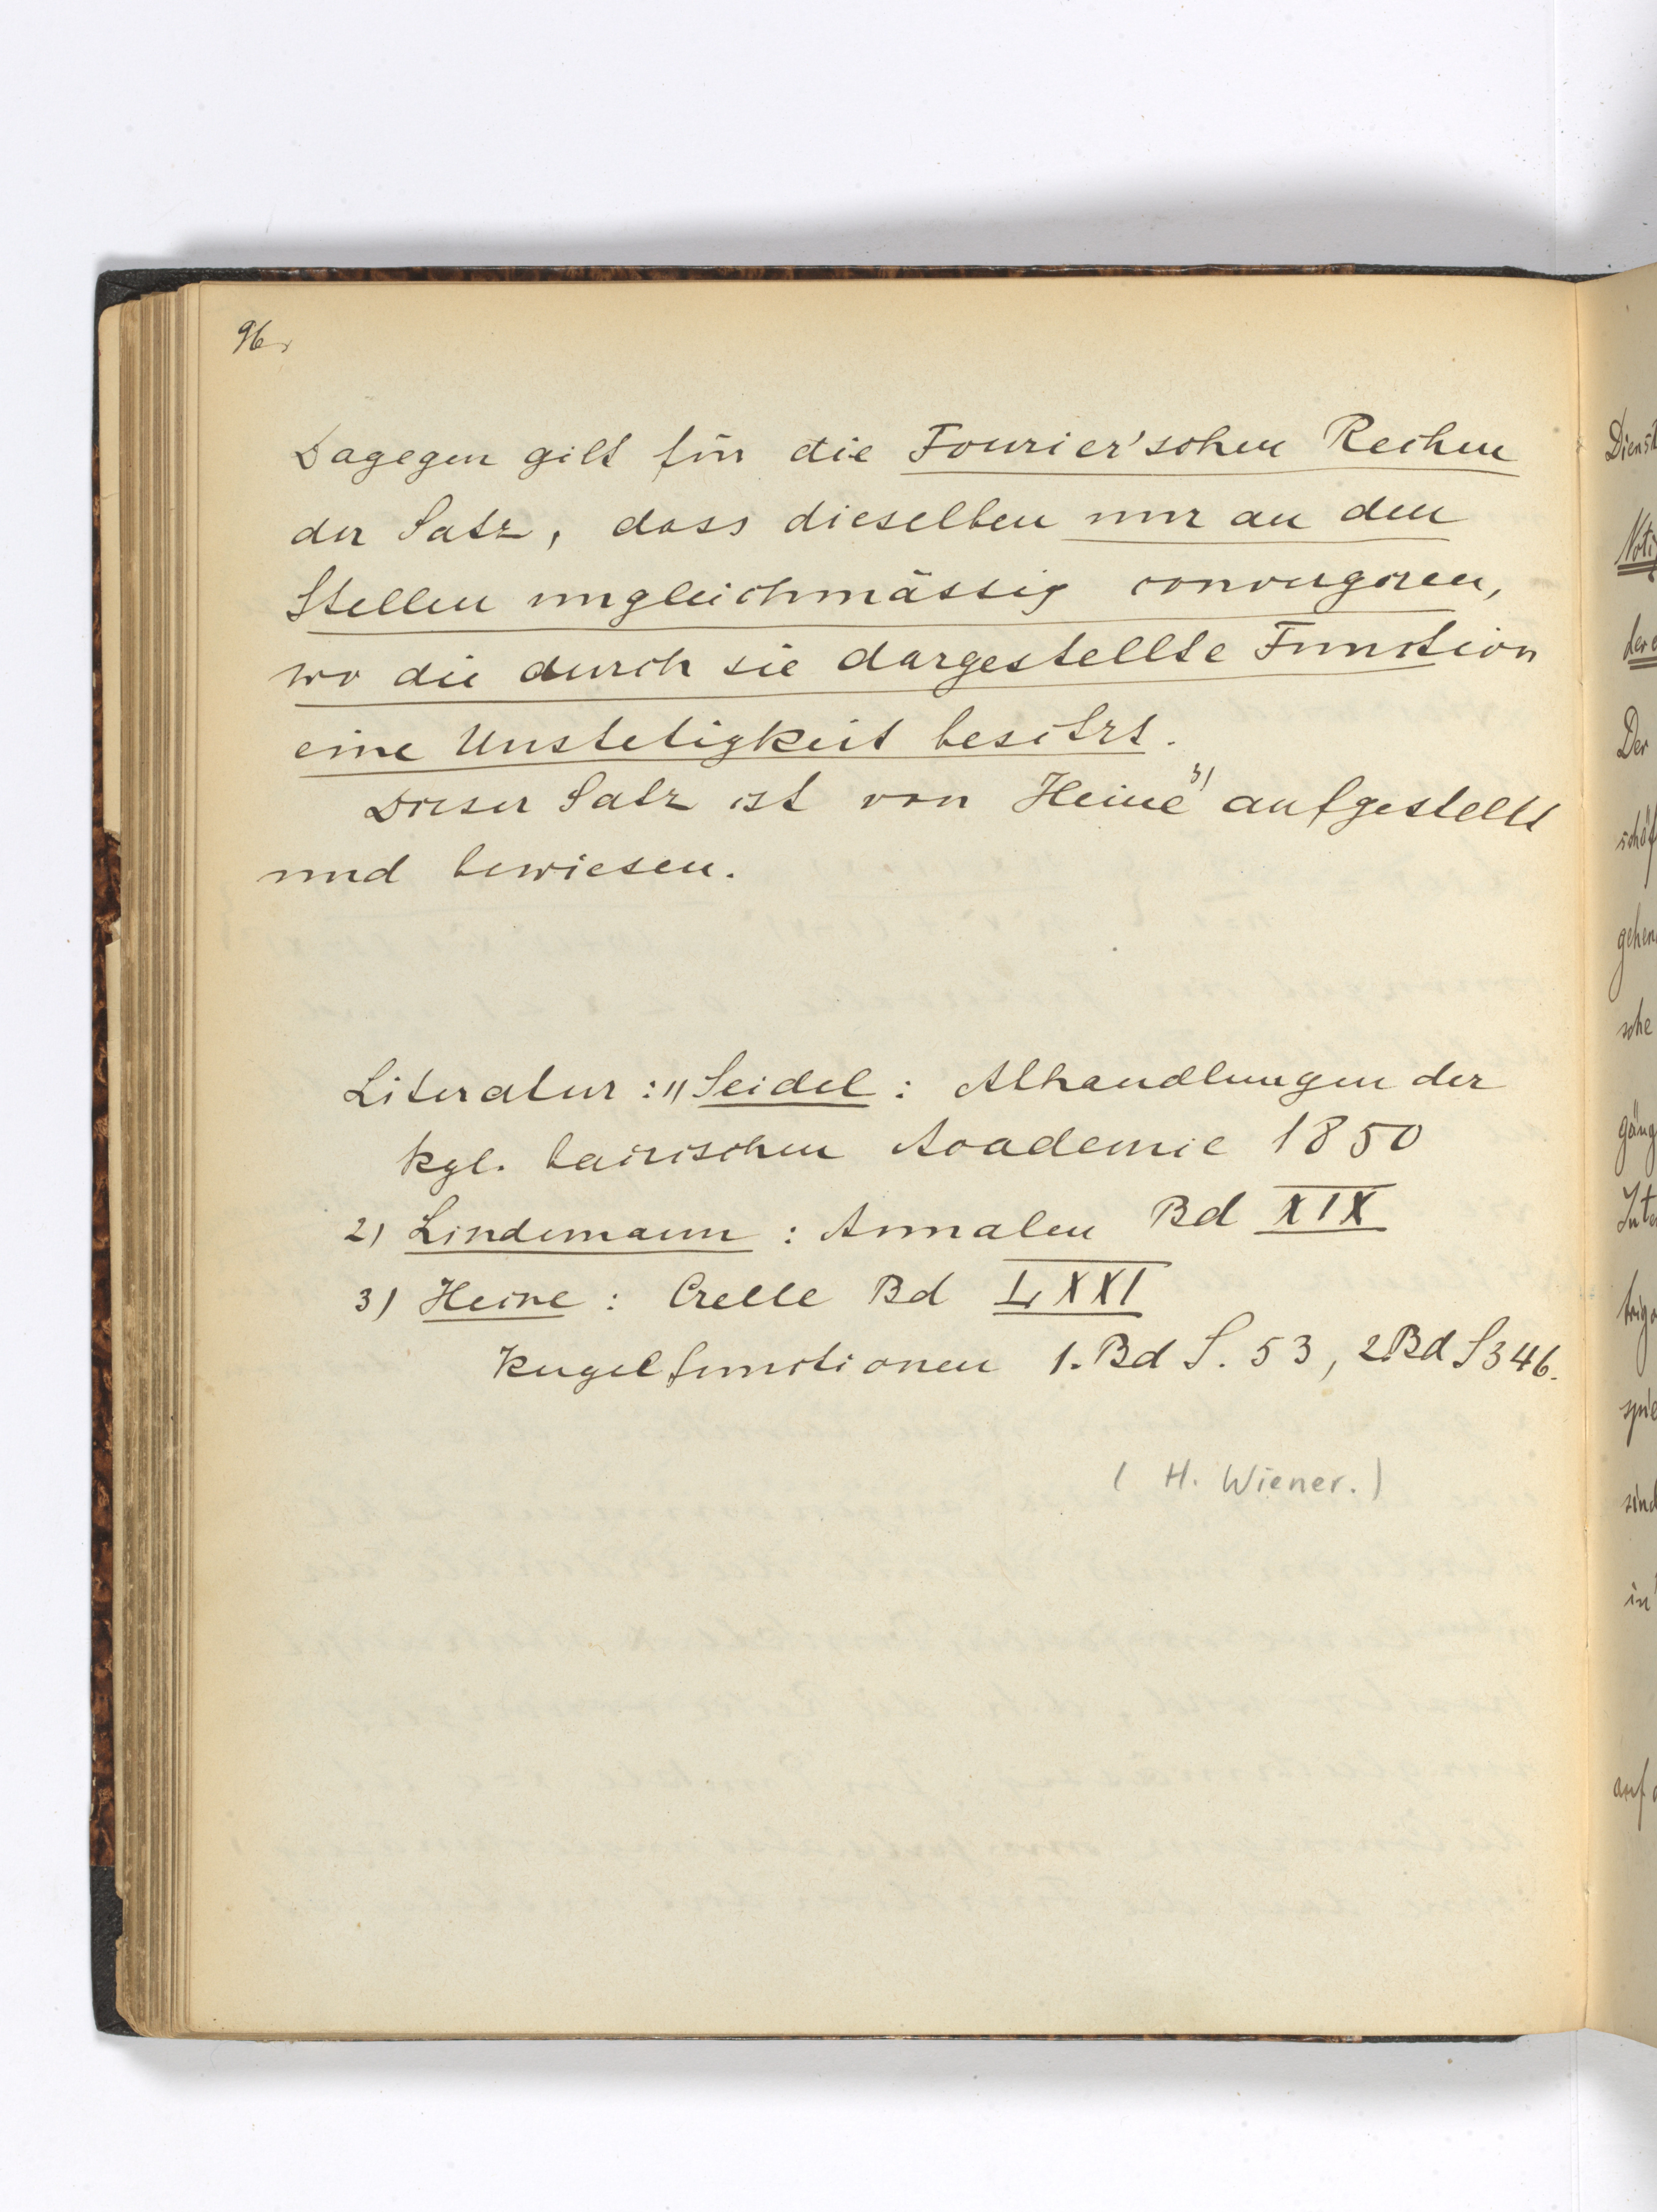 96.
Dagegen gilt für die Fourier'schen Reihen
der Satz, dass dieselben nur an den
Stellen ungleichmässig convergiren,
wo die durch sie dargestellte Function
eine Unstetigkeit besitzt.
Dieser Satz ist von Heine 3) aufgestellt
und bewiesen.
Literatur: 1) Seidel: Abhandlungen der
kgl. bairischen Academie 1850
2) Lindemann: Annalen Bd XIX
3) Heine: Crelle Bd LXXI
Kugelfunctionen 1. Bd S. 53, 2 Bd S 346.
(H. Wiener.)
Der
sche
in